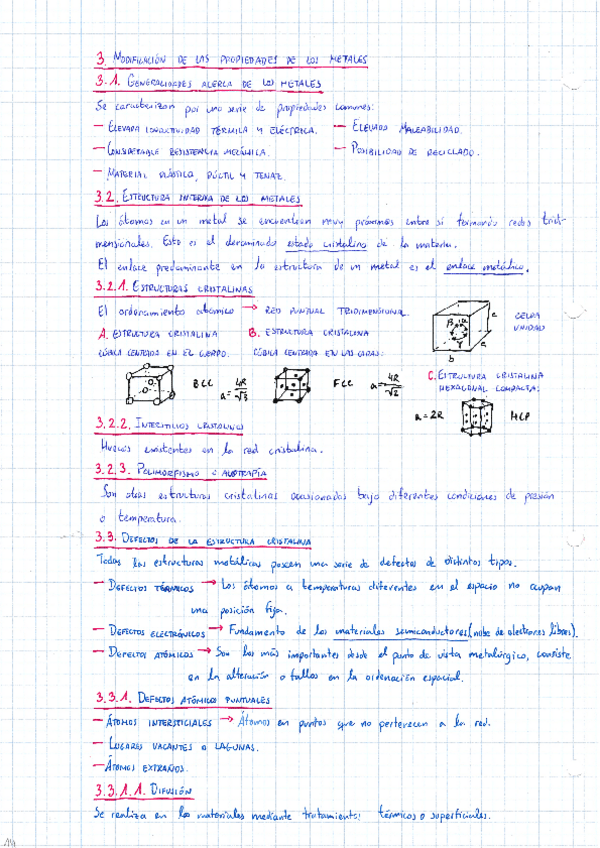 3. MODIFICACIÓN DE LAS PROPIEDADES DE LOS METALES
3.1. GENERALIDADES ACERCA DE LOS METALES
Se caracterizan por una serie de propiedades comunes:
- ELEVADA CONDUCTIVIDAD TÉRMICA Y ELÉCTRICA. - ELEVADA MALEABILIDAD.
- CONSIDERABLE RESISTENCIA MECÁNICA. - POSIBILIDAD DE RECICLADO.
- MATERIAL PLÁSTICO, DÚCTIL Y TENAZ.
3.2. ESTRUCTURA INTERNA DE LOS METALES
Los átomos en un metal se encuentran muy próximos entre sí formando redes tridi-
mensionales. Esto es el denominado estado cristalino de la materia.
El enlace predominante en la estructura de un metal es el enlace metálico.
3.2.1. ESTRUCTURAS CRISTALINAS
El ordenamiento atómico → RED PUNTUAL TRIDIMENSIONAL
CELDA
UNIDAD
β α γ c a b
A. ESTRUCTURA CRISTALINA B. ESTRUCTURA CRISTALINA
CÚBICA CENTRADA EN EL CUERPO. CÚBICA CENTRADA EN LAS CARAS:
C. ESTRUCTURA CRISTALINA
HEXAGONAL COMPACTA:
BCC a = 4R/√3 FCC a = 4R/√2
a = 2R HCP
3.2.2. INTERSTICIOS CRISTALINOS
Huecos existentes en la red cristalina.
3.2.3. POLIMORFISMO o ALOTROPÍA
Son otras estructuras cristalinas ocasionadas bajo diferentes condiciones de presión
o temperatura.
3.3. DEFECTOS DE LA ESTRUCTURA CRISTALINA
Todas las estructuras metálicas poseen una serie de defectos de distintos tipos.
- DEFECTOS TÉRMICOS → Los átomos a temperaturas diferentes en el espacio no ocupan
una posición fija.
- DEFECTOS ELECTRÓNICOS → Fundamento de los materiales semiconductores (nube de electrones libres).
- DEFECTOS ATÓMICOS → Son los más importantes desde el punto de vista metalúrgico, consiste
en la alteración o fallos en la ordenación espacial.
3.3.1. DEFECTOS ATÓMICOS PUNTUALES
- ÁTOMOS INTERSTICIALES → Átomos en puntos que no pertenecen a la red.
- LUGARES VACANTES O LAGUNAS.
- ÁTOMOS EXTRAÑOS.
3.3.1.1. DIFUSIÓN
Se realiza en los materiales mediante tratamientos térmicos o superficiales.